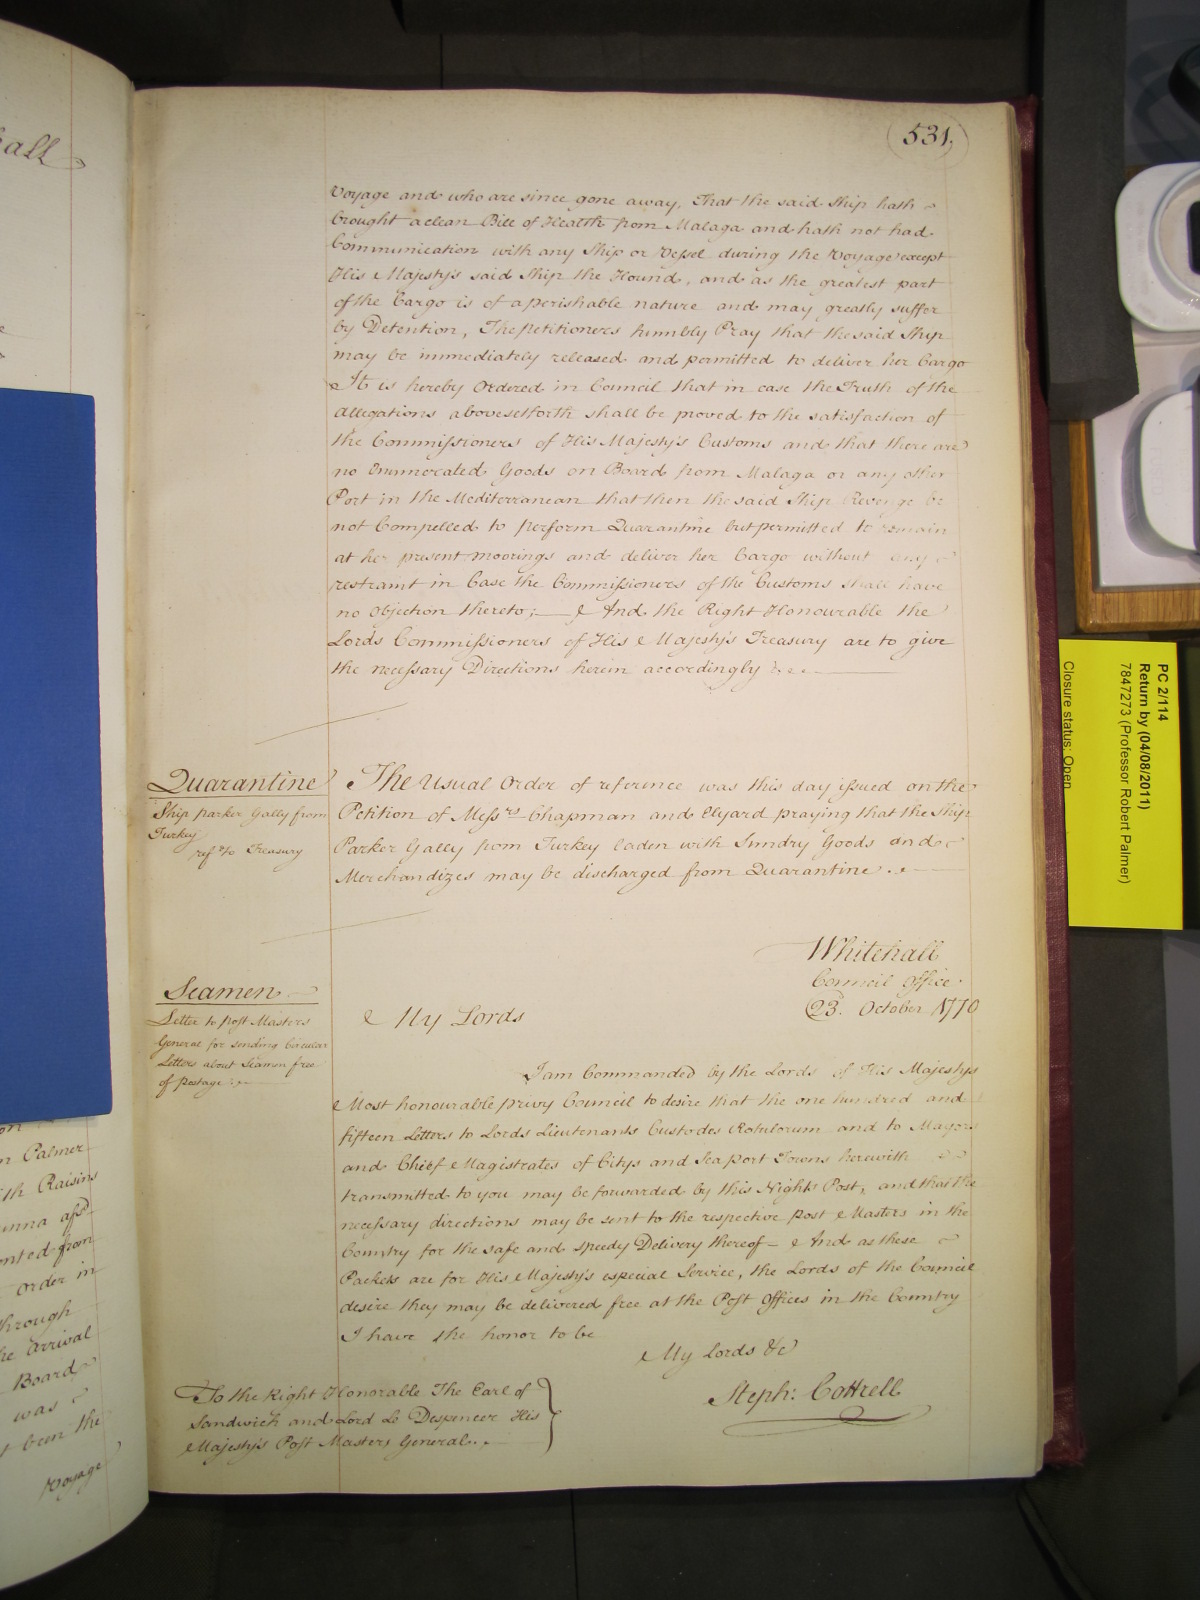 hall
531.
Voyage and who are since gone away, That the said Ship hath
brought a clean Bill of Health from Malaga and hath not had
Communication with any Ship or Vessel during the Voyage except
His Majesty's said Ship the Hound, and as the greatest part
of the Cargo is of a perishable nature and may greatly suffer
by Detention, The petitioners humbly Pray that the said Ship
may be immediately released and permitted to deliver her Cargo
It is hereby Ordered in Council that in case the Truth of the
allegations abovesetforth shall be proved to the satisfaction of
the Commissioners of His Majesty's Customs and that there are
no Enumerated Goods on Board from Malaga or any other
Port in the Mediterranean that then the said Ship Revenge be
not Compelled to perform Quarantine but permitted to remain
at her present moorings and deliver her Cargo without any
restraint in Case the Commissioners of the Customs shall have
no Objection thereto; And the Right Honourable the
Lords Commissioners of His Majesty's Treasury are to give
the necessary Directions herein accordingly
Quarantine
Ship Parker Gally from
Turkey
ref.d to Treasury
The Usual Order of reference was this day issued on the
Petition of Mess.rs Chapman and Elyard praying that the Ship
Parker Gally from Turkey laden with Sundry Goods and
Merchandizes may be discharged from Quarantine.
Whitehall
Council Office
23. October 1770
Seamen
Letter to Post Masters
General for sending Circular
Letters about Seamen free
of Postage
My Lords
I am Commanded by the Lords of His Majestys
Most honourable privy Council to desire that the one hundred and
fifteen Letters to Lords Lieutenants Custodes Rotulorum and to Mayors
and Chief Magistrates of Citys and Seaport Towns herewith
transmitted to you may be forwarded by this Nights Post, and that the
necessary directions may be sent to the respective post Masters in the
Country for the safe and speedy Delivery thereof - And as these
Packets are for His Majesty's especial Service, the Lords of the Council
desire they may be delivered free at the Post Offices in the Country
I have the honor to be
My Lords &c
Steph: Cottrell
To the Right Honorable The Earl of
Sandwich and Lord Le Despencer His
Majesty's Post Masters General.
Palmer
Raisins
order in
through
arrival
Board
was
been the
Voyage
PC 2/114
Return by (04/08/2011)
7847273 (Professor Robert Palmer)
Closure status: Open